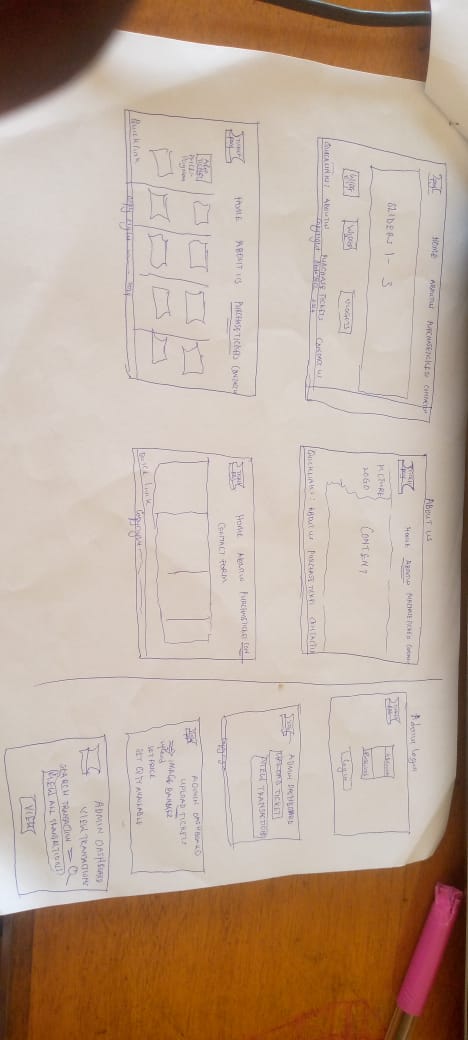 HOME ABOUT US PURCHASE TICKETS CONTACT US
SLIDERS 1 - 3
QUICKLINKS: ABOUT US PURCHASE TICKETS CONTACT US
ABOUT US
HOME ABOUT US PURCHASE TICKETS
PICTURE
LOGO
CONTENT
QUICKLINKS: ABOUT US PURCHASE TICKET CONTACT US
HOME ABOUT US PURCHASE TICKETS
QUICKLINK
Copy right
HOME ABOUT US PURCHASE TICKET
CONTACT FORM
QUICK LINK
Copyright
Admin Login
Login
ADMIN DASHBOARD
UPLOAD TICKET
VIEW TRANSACTIONS
ADMIN DASHBOARD
UPLOAD TICKETS
IMAGE BANNER
upload
SET PRICE
SET QTY AVAILABLE
ADMIN DASHBOARD
VIEW TRANSACTIONS
SEARCH TRANSACTION
VIEW ALL TRANSACTIONS
VIEW